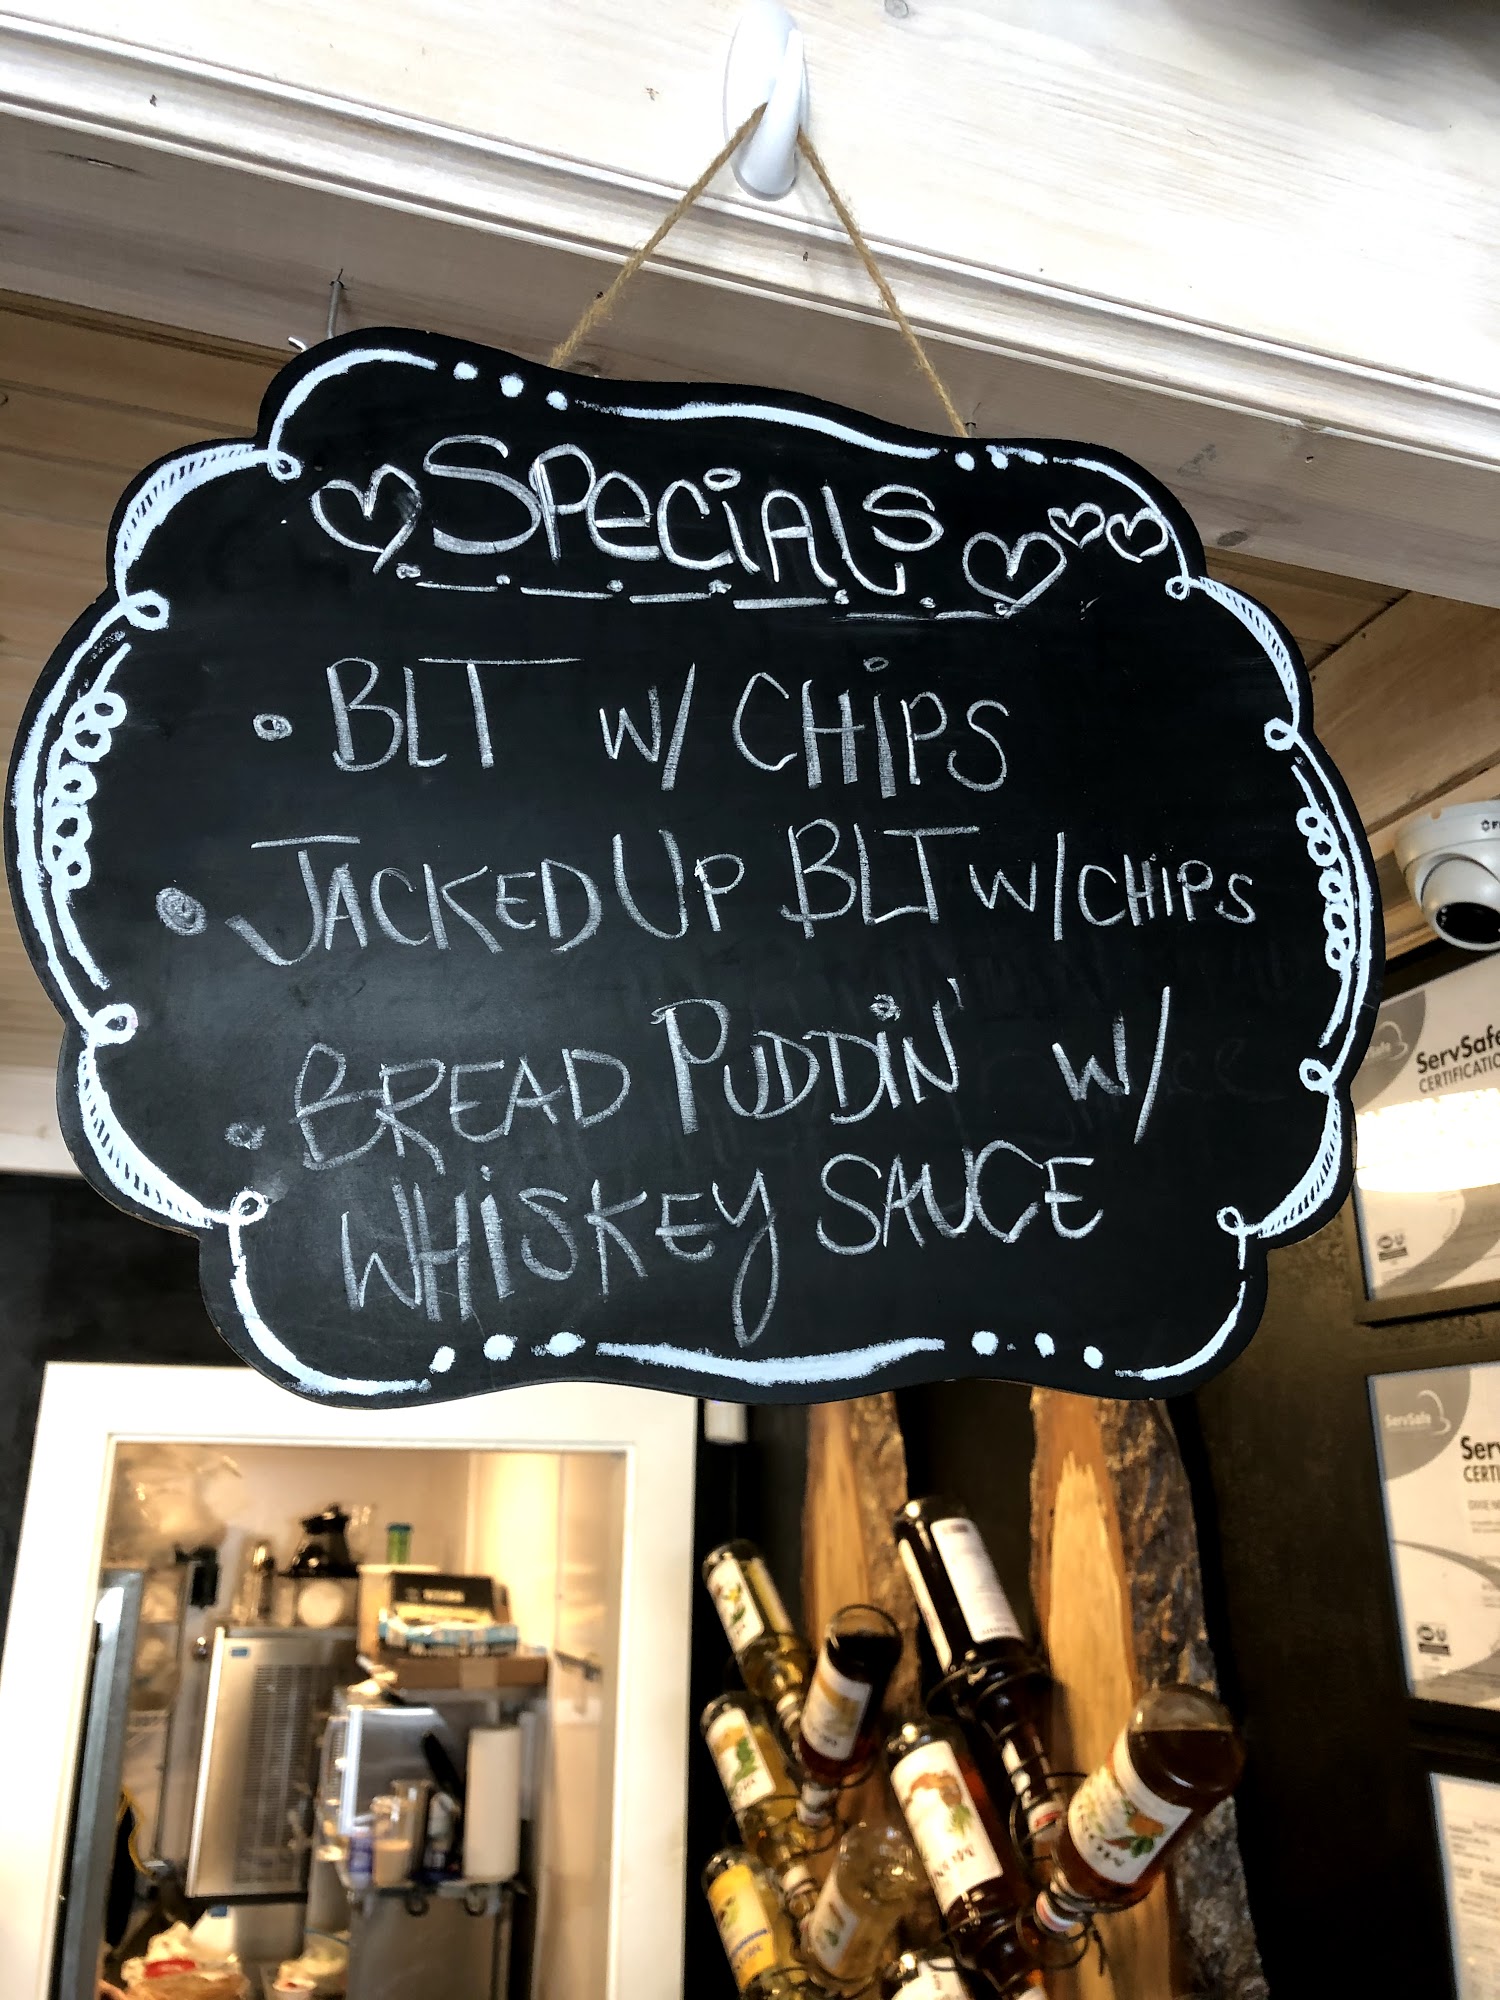 SPeciAls
• BLT W/ CHiPS
• JACKED UP BLT W/ CHiPS
• BREAD PUDDiN' W/
WHiSKEY SAUCE
ServSafe
CERTIFICATIO
ServSafe
Serv
CERTI